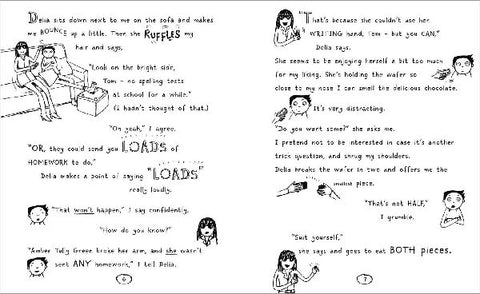 Delia sits down next to me on the sofa and makes
me BOUNCE up a little. Then she RUFFLES my
hair and says,
"Look on the bright side,
Tom - no spelling tests
at school for a while."
(I hadn't thought of that.)
"Oh yeah," I agree.
"OR, they could send you LOADS of
HOMEWORK to do."
Delia makes a point of saying "LOADS"
really loudly.
"That won't happen," I say confidently.
"How do you know?"
"Amber Tully Green broke her arm, and she wasn't
sent ANY homework," I tell Delia.
6
"That's because she couldn't use her
WRITING hand, Tom - but you CAN,"
Delia says.
She seems to be enjoying herself a bit too much
for my liking. She's holding the wafer so
close to my nose I can smell the delicious chocolate.
It's very distracting.
"Do you want some?" she asks me.
I pretend not to be interested in case it's another
trick question, and shrug my shoulders.
Delia breaks the wafer in two and offers me the
smallest piece.
"That's not HALF,"
I grumble.
"Suit yourself,"
she says and goes to eat BOTH pieces.
7